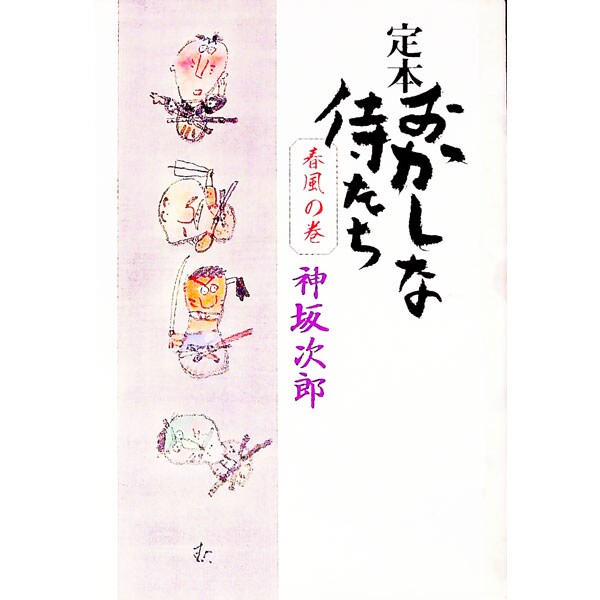 定本
おかしな
侍たち
春風の巻
神坂次郎